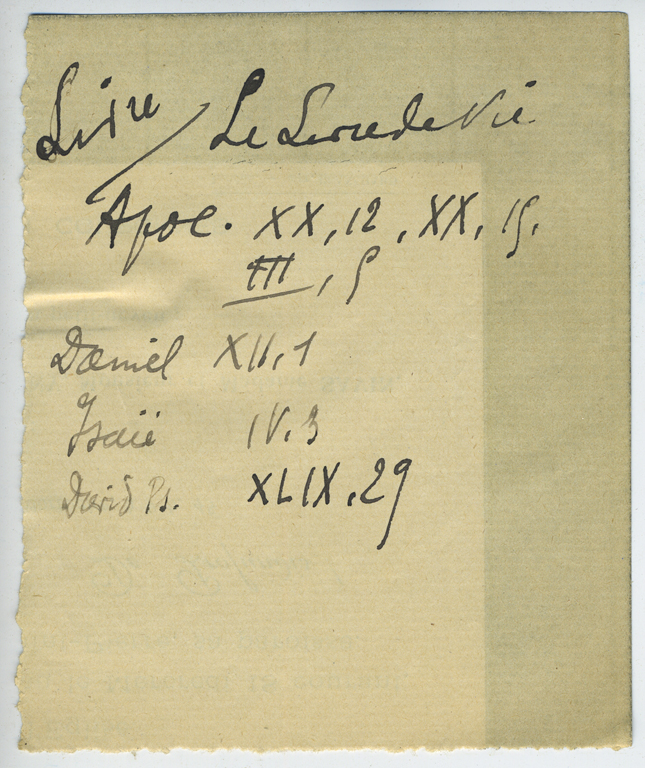 Livre / Le Livre de Vie.
Apoc. XX, 12, XX, 15,
III, 5
Daniel XII, 1
Isaïe IV. 3
David Ps. XLIX, 29